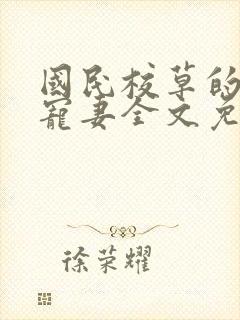 國民校草的
寵妻全文免
徐荣耀